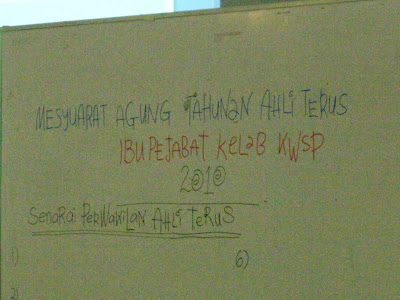 MESYUARAT AGUNG TAHUNAN AHLI TERUS
IBU PEJABAT KELAB KWSP
2010
SENARAI PERWAKILAN AHLI TERUS
1) 6)
2)